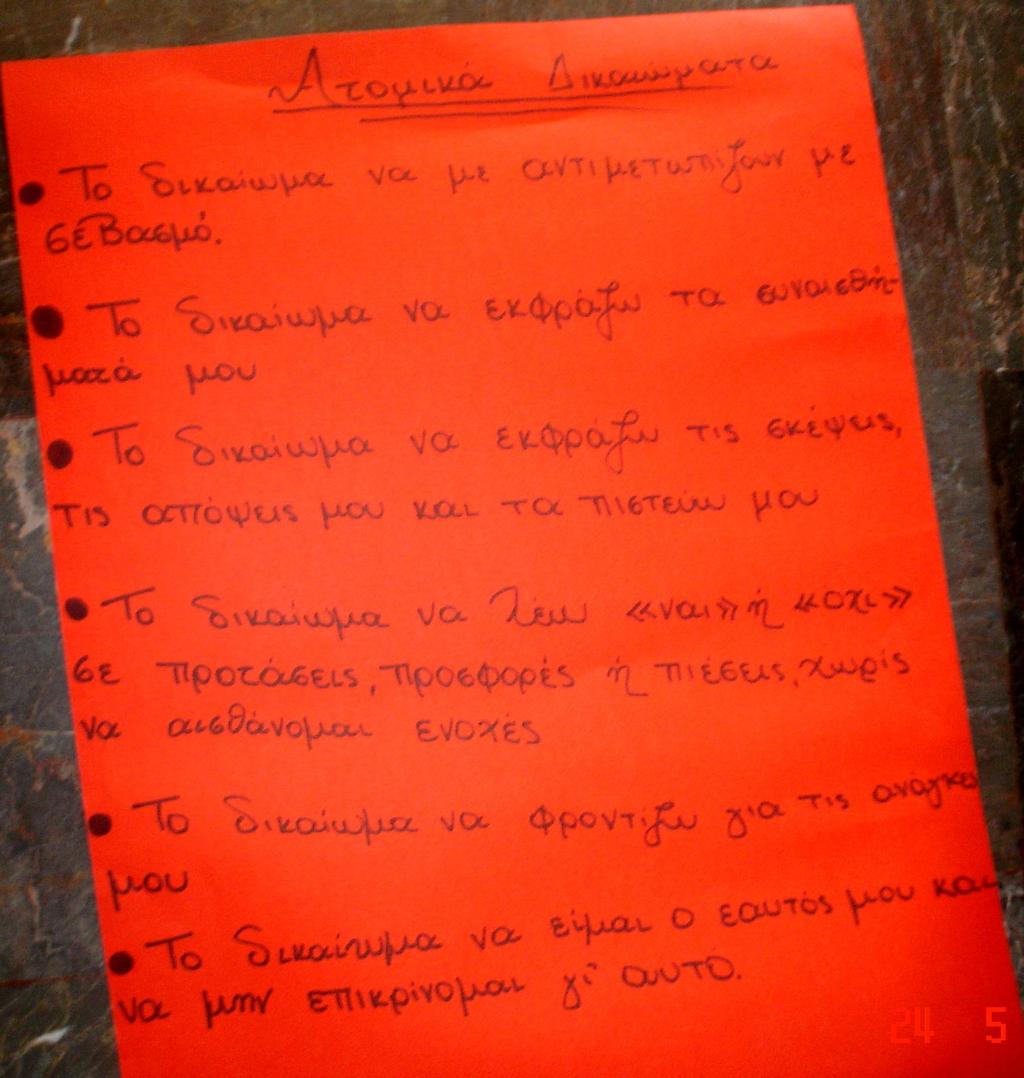 Ατομικά Δικαιώματα
• Το δικαίωμα να με αντιμετωπίζουν με
σεβασμό.
• Το δικαίωμα να εκφράζω τα συναισθή-
ματά μου
• Το δικαίωμα να εκφράζω τις σκέψεις,
τις απόψεις μου και τα πιστεύω μου
• Το δικαίωμα να λέω «ναι» ή «όχι»
σε προτάσεις, προσφορές ή πιέσεις, χωρίς
να αισθάνομαι ενοχές
• Το δικαίωμα να φροντίζω για τις ανάγκες
μου
• Το δικαίωμα να είμαι ο εαυτός μου και
να μην επικρίνομαι γι' αυτό.
24 5